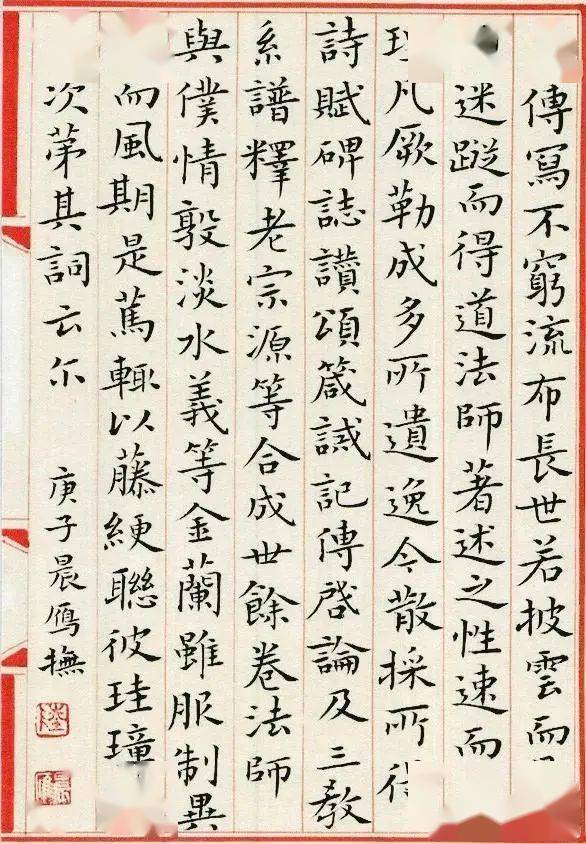 傳寫不窮流布長世若披雲而
迷蹤而得道法師著述之性速而
凡厥勒成多所遺逸今散採所
詩賦碑誌讃頌箴誡記傳啓論及三教
系譜釋老宗源等合成世餘卷法師
與僕情敦淡水義等金蘭雖服制異
而風期是篤輒以藤緶聯彼珪璋
次苐其詞云尓 庚子晨鴈撫